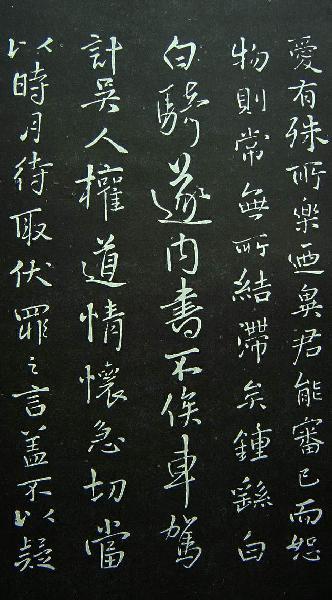 愛有殊所樂迺異君能審己而恕
物則常無所結滯矣鍾繇白
白騎遂内書不俟車駕
計吳人權道情懷急切當
以時月待取伏罪之言蓋不以疑